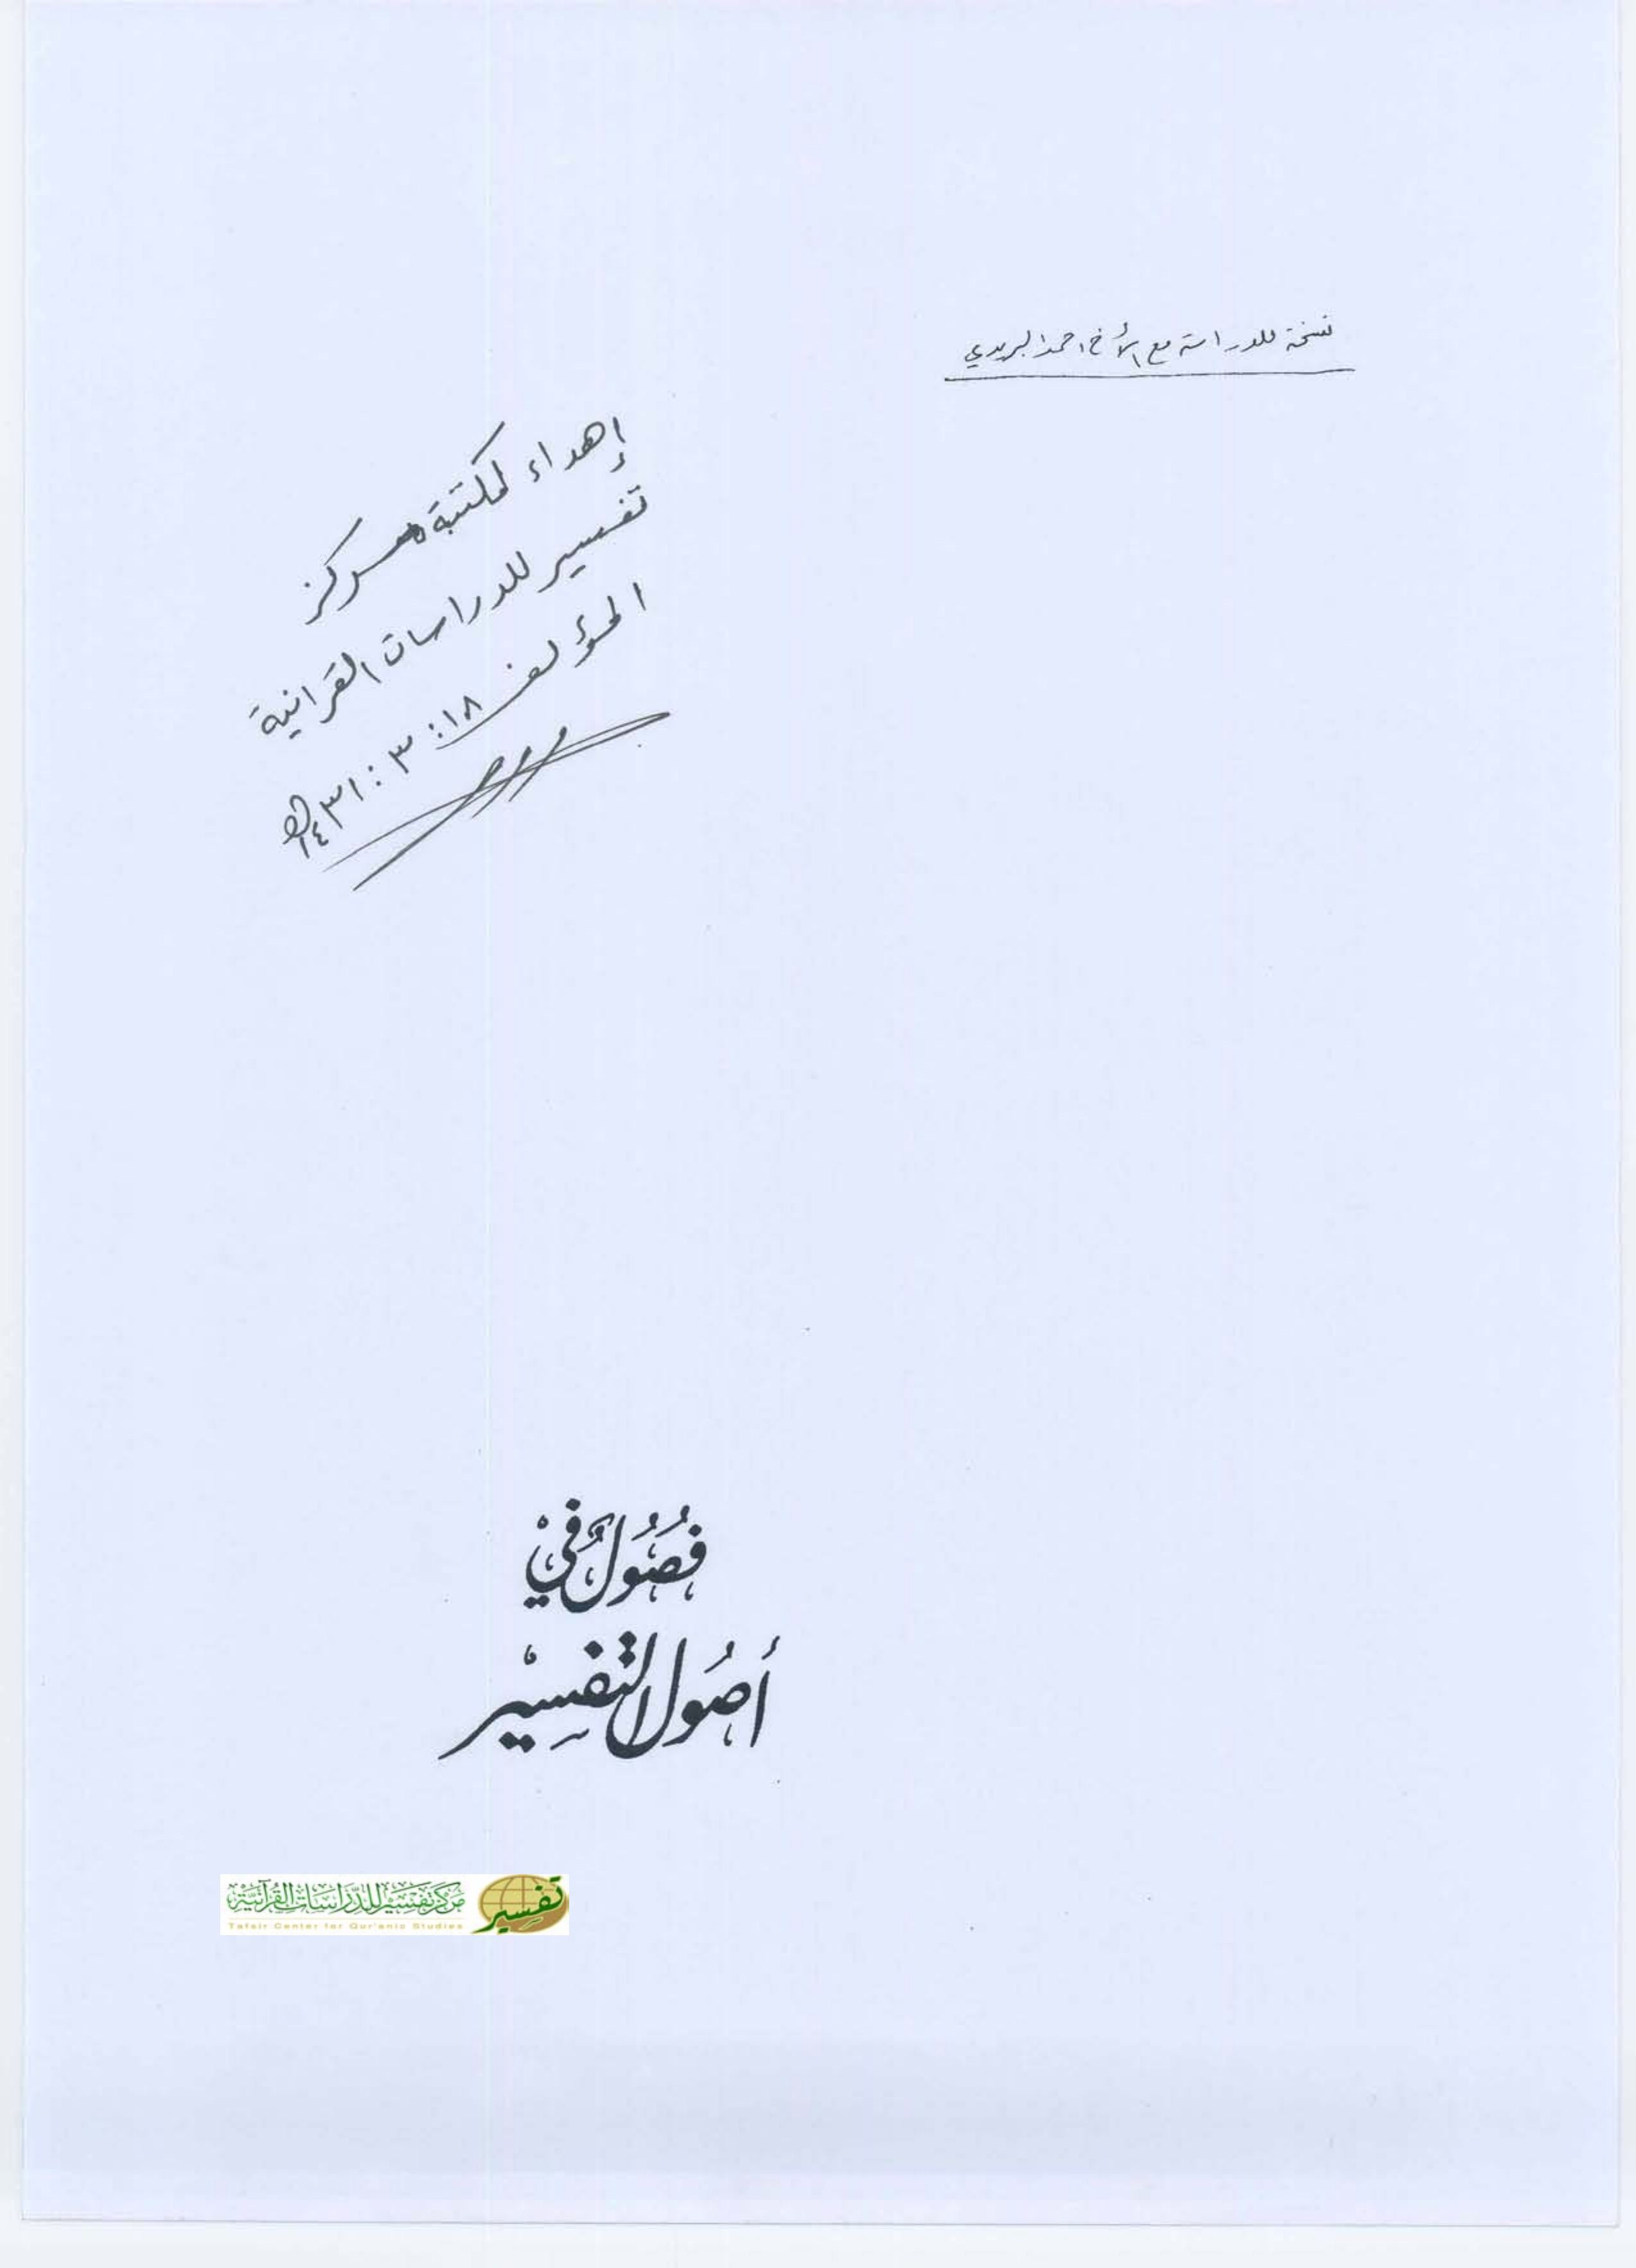 نسخة للدراسة مع الأخ أحمد البريدي
إهداء لمكتبة مركز
تفسير للدراسات القرانية
المؤلف
١٨ : ٣ : ١٤٣١هـ
فُصُولٌ فِيْ
أُصُولِ التَّفْسِيْرِ
مركز تفسير للدراسات القرآنية
Tafsir Center for Qur'anic Studies
تفسير